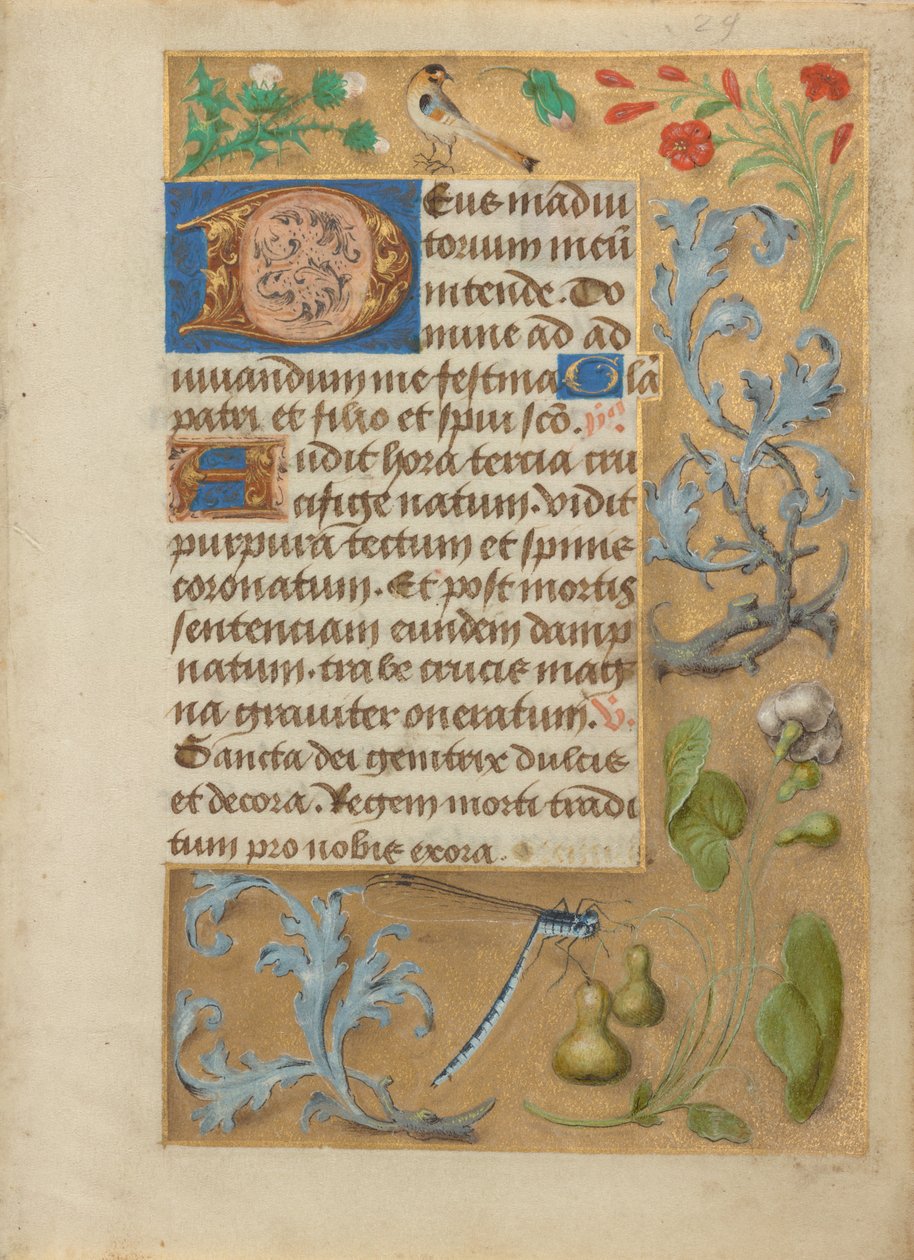 29
Deus in adiu
torium meū
intende. Do
mine ad ad
iuuandum me festina Glā
patri et filio et spiui scō. ym̄9
Audit hora tercia cru
cifige natum. vidit
purpura tectum et spine
coronatum. Et post mortis
sentenciam eundem damp
natum. trabe crucis mag
na grauiter oneratum. V.
Sancta dei genitrix dulcis
et decora. Regem morti tradi
tum pro nobis exora.